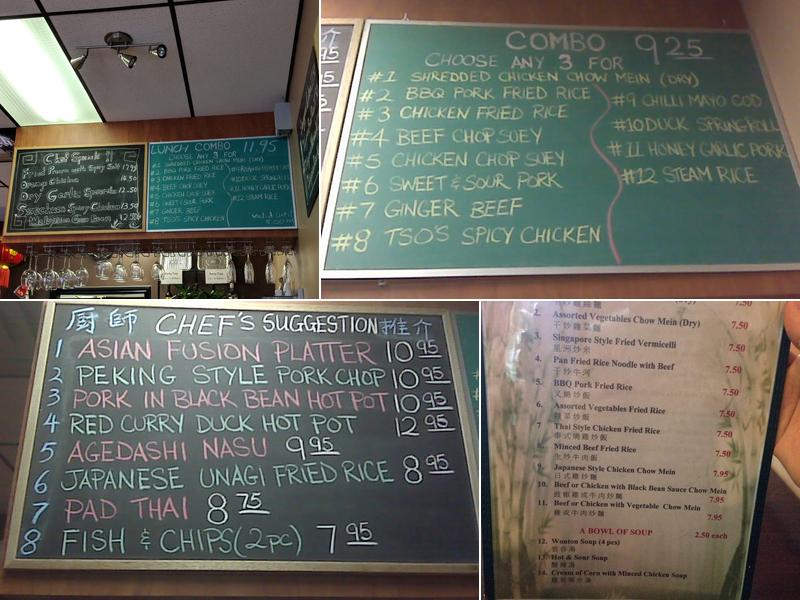 Chef Special !!
Orange Chicken 14.50
Dry Garlic Spareribs 12.50
Szechuan Chicken 13.50
LUNCH COMBO 11.95
CHOOSE ANY 3 FOR
#1 SHREDDED CHICKEN CHOW MEIN (DRY)
#2 BBQ PORK FRIED RICE
#3 CHICKEN FRIED RICE
#4 BEEF CHOP SUEY
#5 CHICKEN CHOP SUEY
#6 SWEET & SOUR PORK
#7 GINGER BEEF
#8 TSO'S SPICY CHICKEN
#10 DUCK SPRINGROLL
#11 HONEY GARLIC PORK
#12 STEAM RICE
COMBO 9 25
CHOOSE ANY 3 FOR
#1 SHREDDED CHICKEN CHOW MEIN (DRY)
#2 BBQ PORK FRIED RICE
#3 CHICKEN FRIED RICE
#4 BEEF CHOP SUEY
#5 CHICKEN CHOP SUEY
#6 SWEET & SOUR PORK
#7 GINGER BEEF
#8 TSO'S SPICY CHICKEN
#9 CHILLI MAYO COD
#10 DUCK SPRINGROLL
#11 HONEY GARLIC PORK
#12 STEAM RICE
厨師 CHEF'S SUGGESTION 推介
1 ASIAN FUSION PLATTER 10 95
2 PEKING STYLE PORK CHOP 10 95
3 PORK IN BLACK BEAN HOT POT 10 95
4 RED CURRY DUCK HOT POT 12 95
5 AGEDASHI NASU 9 95
6 JAPANESE UNAGI FRIED RICE 8 95
7 PAD THAI 8 75
8 FISH & CHIPS (2pc) 7 95
7.50
2. Assorted Vegetables Chow Mein (Dry) 7.50
干炒雜菜麵
3. Singapore Style Fried Vermicelli 7.50
星洲炒米
4. Pan Fried Rice Noodle with Beef 7.50
干炒牛河
5. BBQ Pork Fried Rice 7.50
叉燒炒飯
6. Assorted Vegetables Fried Rice 7.50
雜菜炒飯
7 Thai Style Chicken Fried Rice 7.50
泰式燒雞炒飯
Minced Beef Fried Rice 7.50
生炒牛肉飯
9. Japanese Style Chicken Chow Mein 7.95
日式雞炒麵
10. Beef or Chicken with Black Bean Sauce Chow Mein 7.95
豉椒雞或牛肉炒麵
11. Beef or Chicken with Vegetable Chow Mein 7.95
雞或牛肉炒麵
A BOWL OF SOUP 2.50 each
12. Wonton Soup (4 pcs)
雲吞湯
13. Hot & Sour Soup
酸辣湯
14. Cream of Corn with Minced Chicken Soup
雞蓉粟米湯